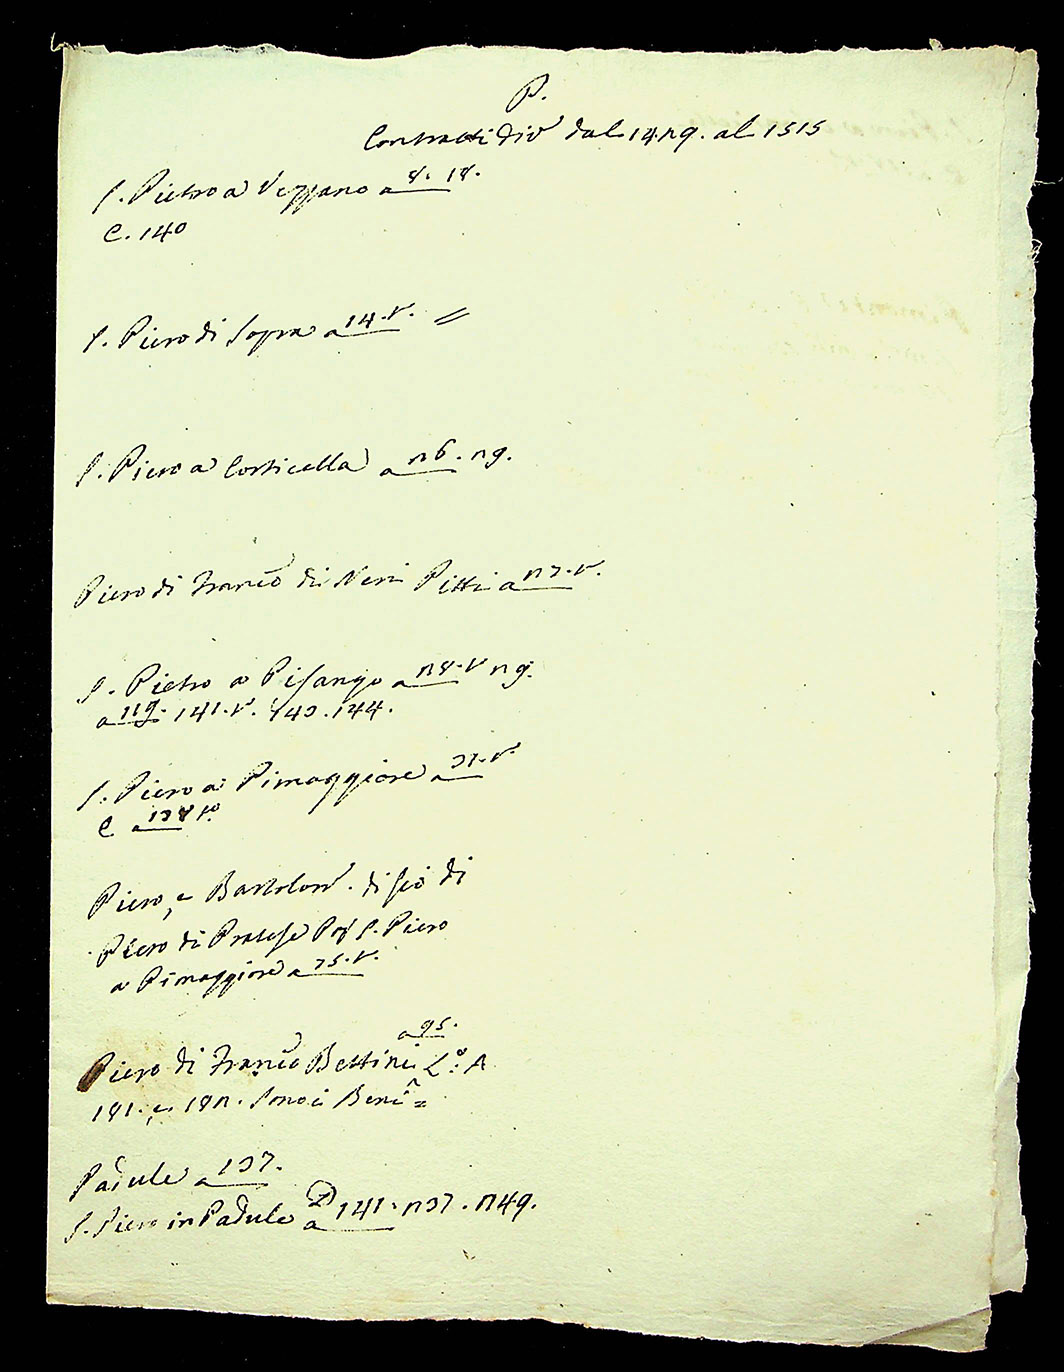 P.
Contratti div. dal 1429. al 1515
S. Pietro a Vezzano a 8. 18.
e. 140
S. Piero di Sopra a 14. v. =
S. Piero a Corticella a 26. 29.
Piero di Franco di Neri Pitti a 27. v.
S. Pietro a Pisango a 28. v 29.
a 119. 141. v. 143. 144.
S. Piero a Rimaggiore a 31. v.
e a 138 vo
Piero, e Bartolom. di Gio di
Piero di Pratese S. Piero
a Rimaggiore a 75. v.
a 95.
Piero di Franco Bettini Lo: A
181. e, 182. sono i Beni =
Padule a 137.
S. Piero in Padule a 141. 237. 249.